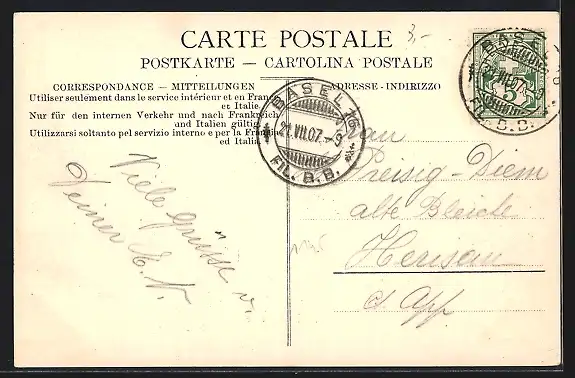 CARTE POSTALE
3,-
POSTKARTE — CARTOLINA POSTALE
CORRESPONDANCE - MITTEILUNGEN
ADRESSE - INDIRIZZO
Utiliser seulement dans le service intérieur et en France
et Italie.
Nur für den internen Verkehr und nach Frankreich
und Italien gültig.
Utilizzarsi soltanto pel servizio interno e per la Francia
ed Italia.
BASEL
21.VII.07.-9
FIL. B.B.
BASEL
VII.07
B.B.
5
Viele Grüsse v.
Deiner E. N.
Frau
Preisig-Diem
alte Bleiche
Herisau
Ct App